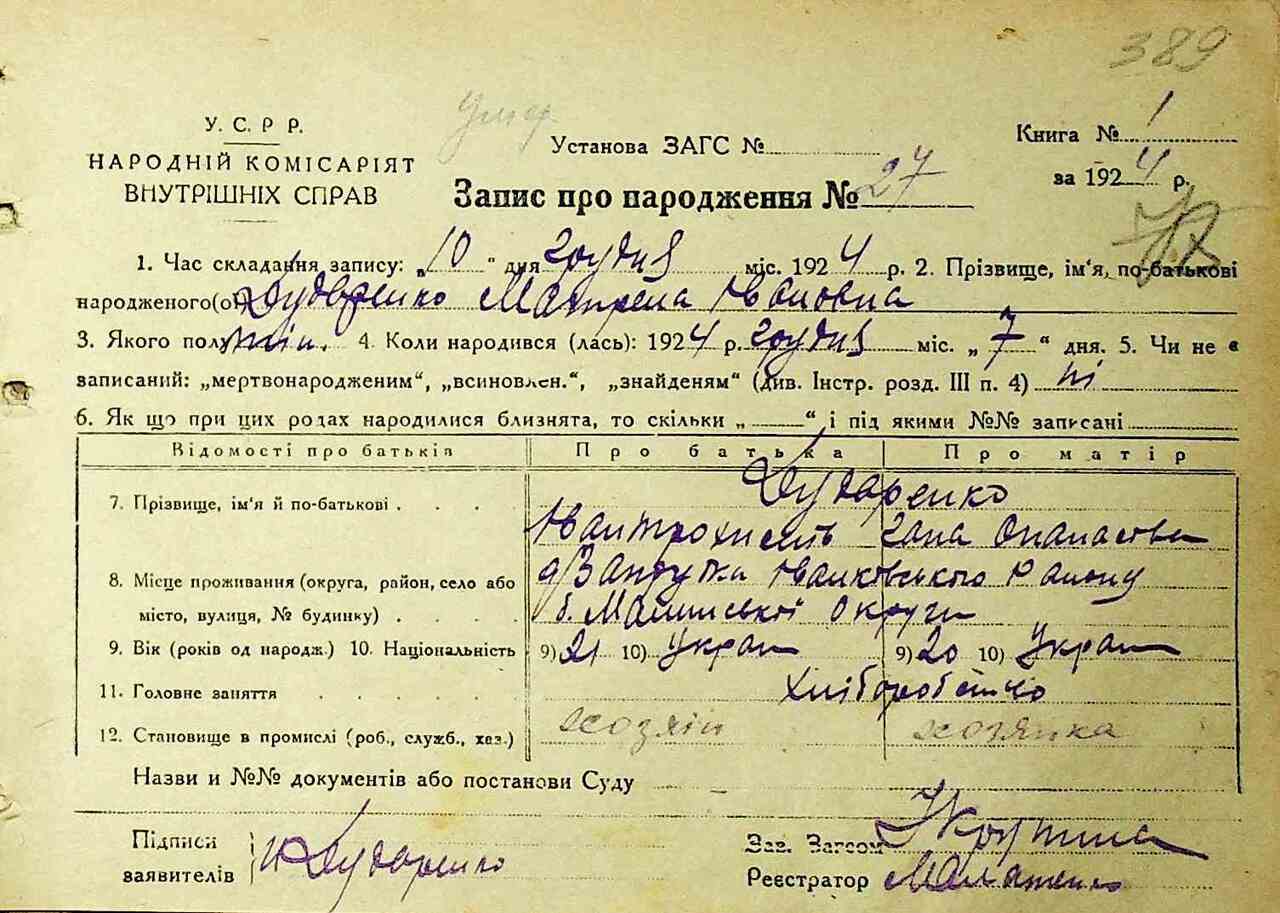 389
У. С. Р Р.
НАРОДНІЙ КОМІСАРІЯТ
ВНУТРІШНІХ СПРАВ
Установа ЗАГС №
Запис про народження № 27
Книга № 1
за 1924 р.
1. Час складання запису: „10“ дня грудня міс. 1924 р. 2. Прізвище, ім'я, по-батькові
народженого(ої) Дударенко Мотрена Ивановна
3. Якого полу жін. 4. Коли народився (лась): 1924 р. грудня міс. „7“ дня. 5. Чи не є
записаний: „мертвонародженим“, „всиновлен.“, „знайденям“ (див. Інстр. розд. III п. 4) ні
6. Як що при цих родах народилися близнята, то скільки „ “ і під якими №№ записані
Відомості про батьків Про батька Про матір
7. Прізвище, ім'я й по-батькові . . . . Дударенко
Ганна
8. Місце проживання (округа, район, село або
місто, вулиця, № будинку) . . . . Іванковського Району
б. Малинської Округи
9. Вік (років од народж.) 10. Національність 9) 21 10) Украг 9) 20 10) Украг
11. Головне заняття . . . . . Хліборобство
12. Становище в промислі (роб., служб., хаз.) хозяін хозяйка
Назви и №№ документів або постанови Суду
Підписи
заявителів И Дударенко
Зав. Загсом
Реєстратор